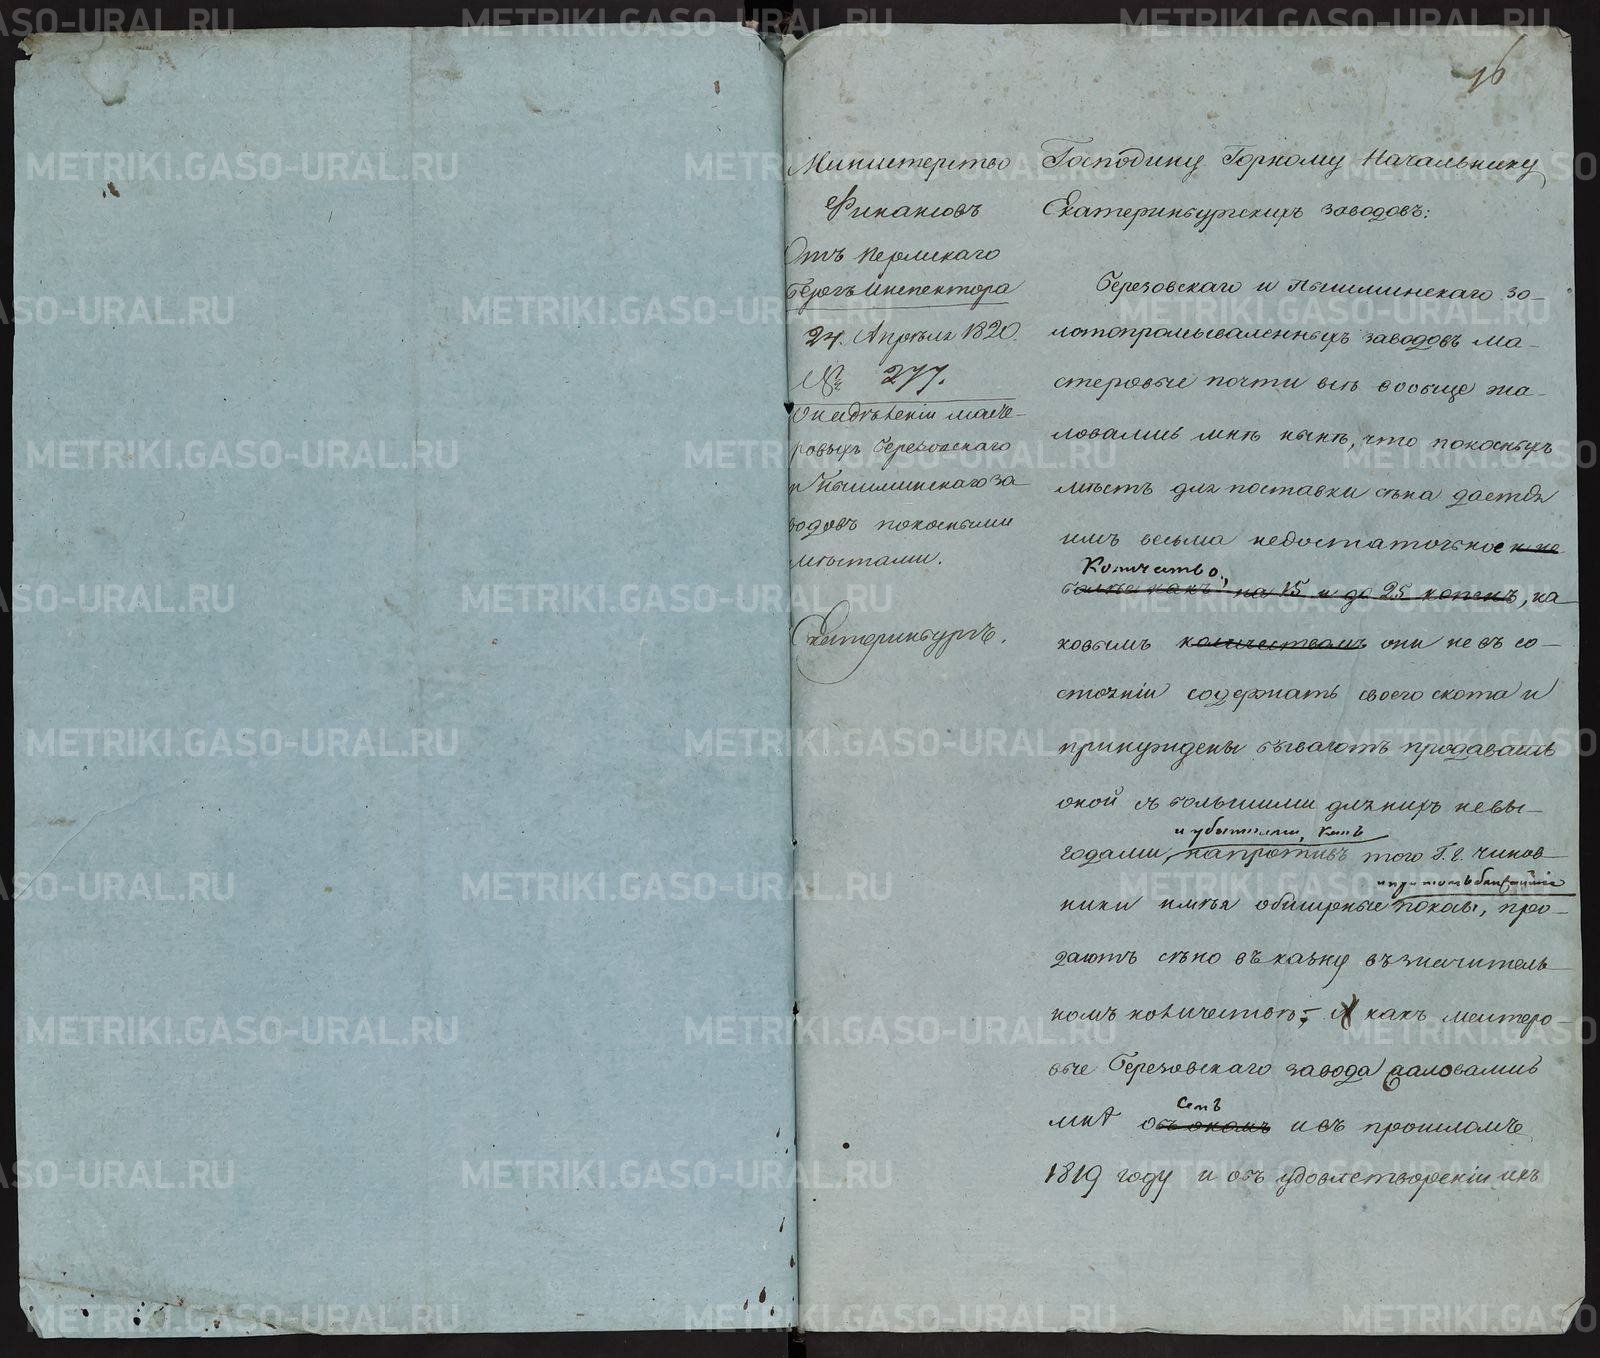 16
Министерство
Финансовъ
Отъ Пермскаго
Бергъ Инспектора
24. Апрѣля 1820.
№ 277.
О надѣленіи масте-
ровыхъ Березовскаго
и Пышминскаго за
водовъ покосными
мѣстами.
Екатеринбургъ.
Господину Горному Начальнику
Екатеринбургскихъ заводовъ:
Березовскаго и Пышминскаго зо-
лотопромываленныхъ заводовъ ма-
стеровые почти всѣ вообще жа-
ловались мнѣ нынѣ, что покосныхъ
мѣстъ для поставки сѣна дается
имъ весьма недостаточное и не
Количество,
болѣе какъ на 15 и до 25 копенъ, ка
ковымъ количествомъ они не въ со-
стояніи содержать своего скота и
принуждены бываютъ продавать
оной съ большими для нихъ невы-
и убытками, какъ
годами, напротивъ того Г. г. чинов-
и при томъ ближайшіе
ники имѣя обширные покосы, про-
даютъ сѣно въ казну въ значитель
номъ количествѣ; И какъ мастеро-
вые Березовскаго завода жаловались
семъ
мнѣ объ ономъ и въ прошломъ
1819 году и объ удовлетвореніи ихъ
METRIKI.GASO-URAL.RU